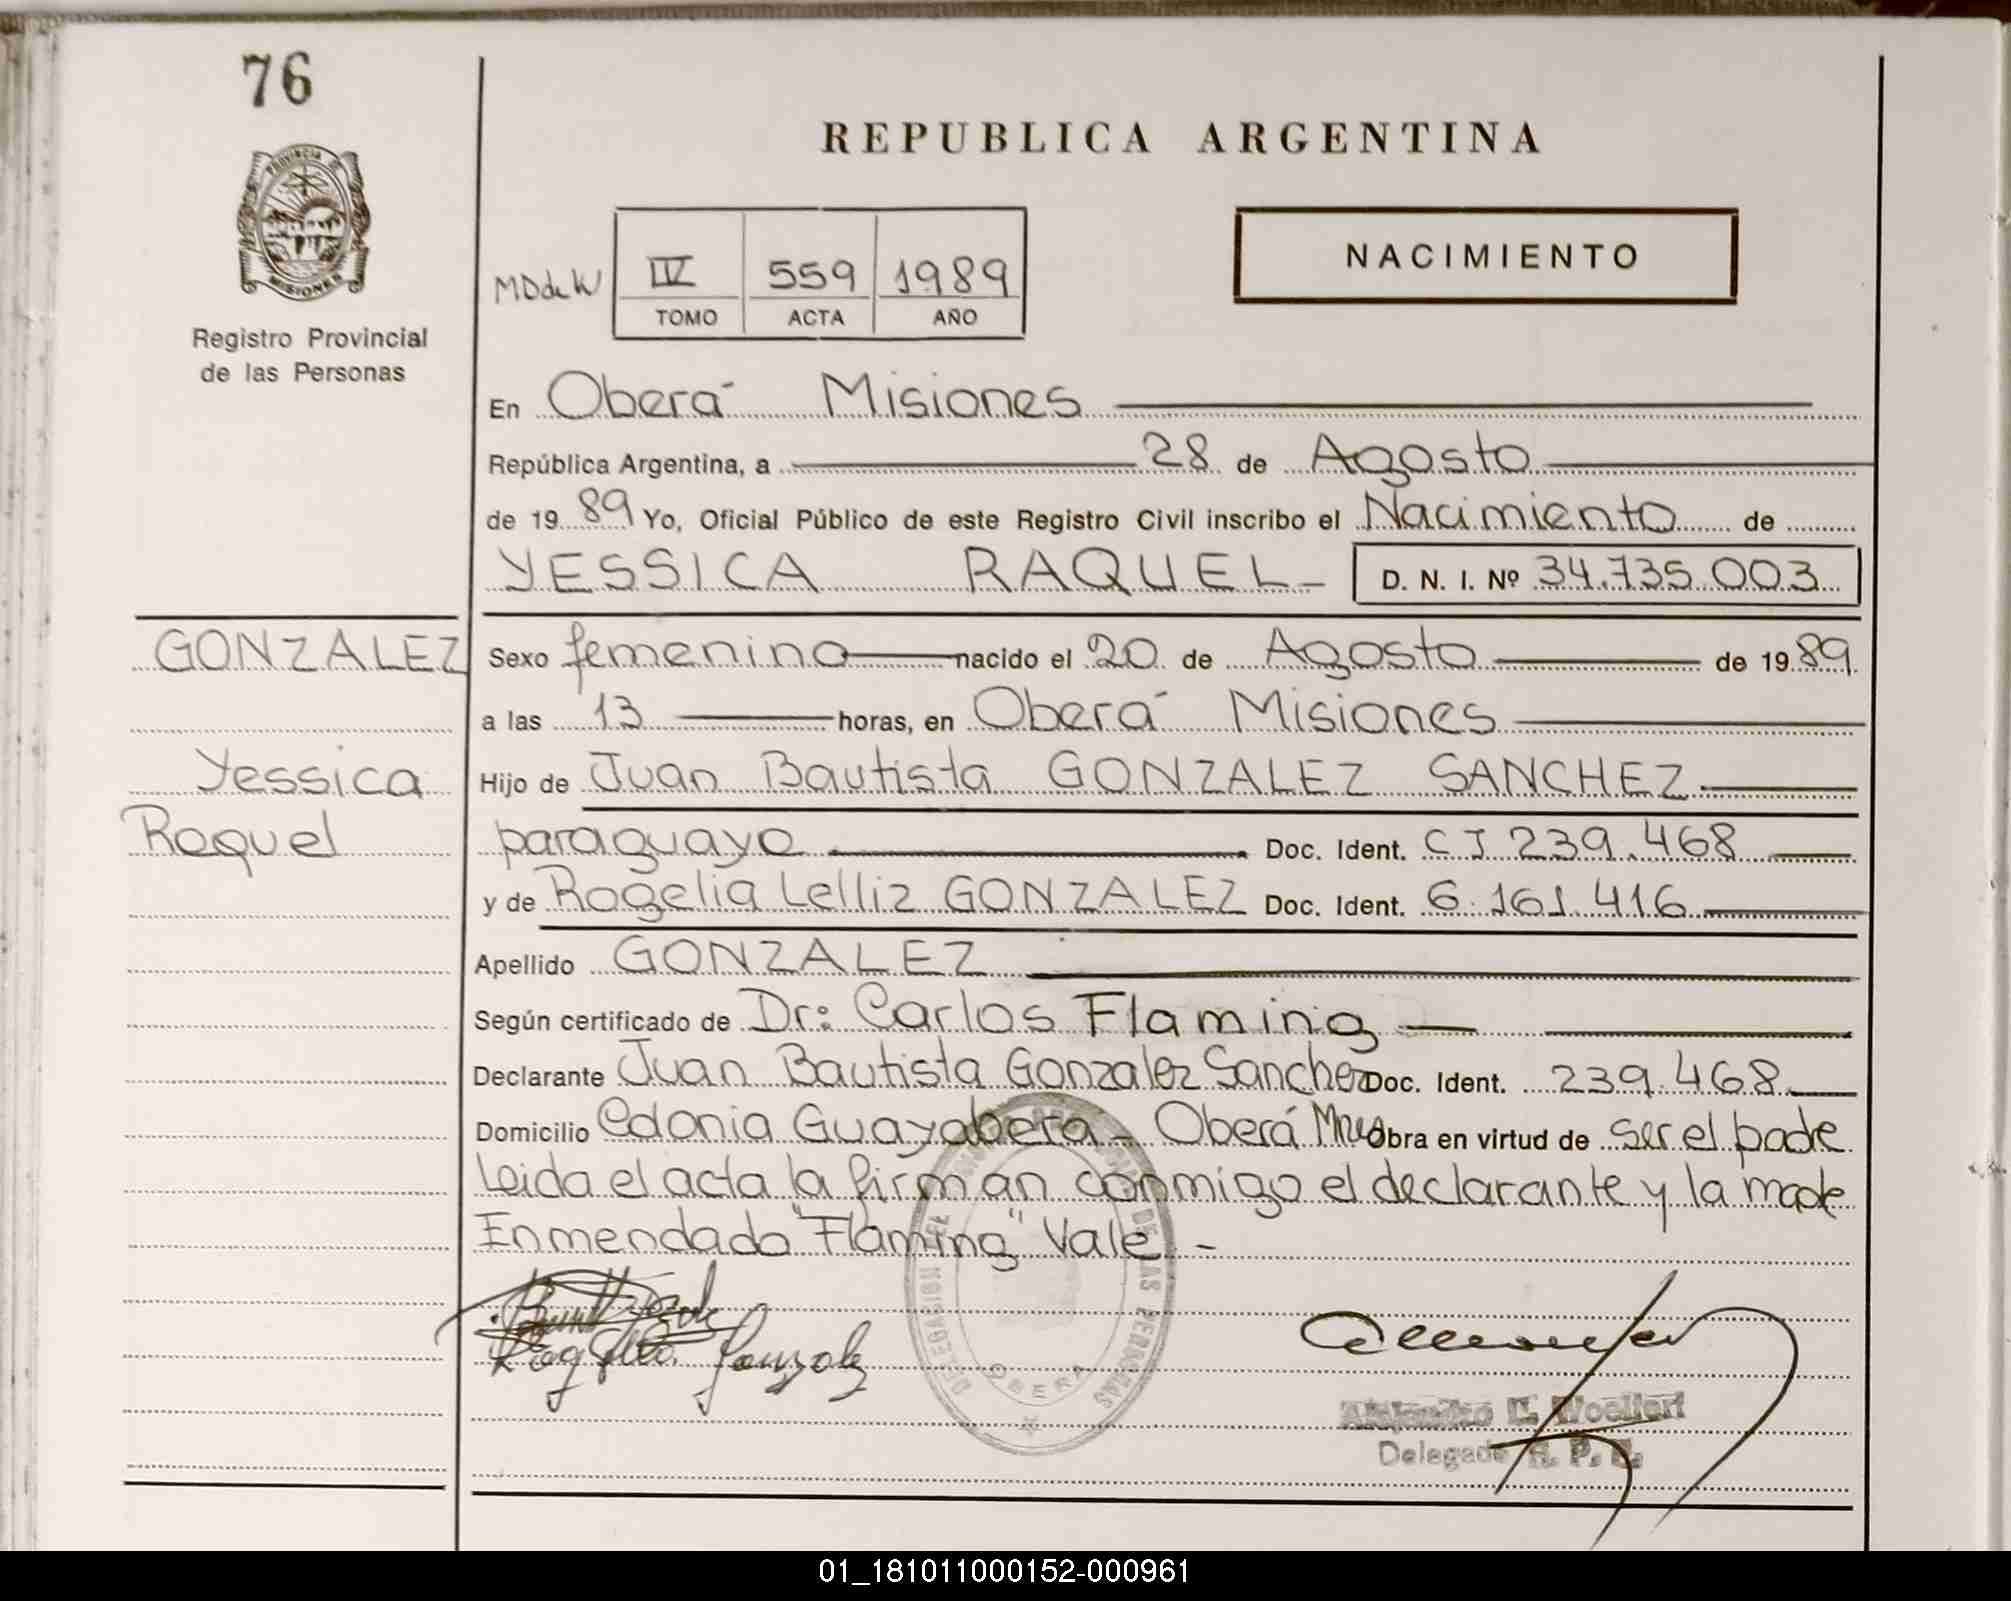 76
REPUBLICA ARGENTINA
PROVINCIA
MISIONES
Registro Provincial
de las Personas
MDdeW IV 559 1989
TOMO ACTA AÑO
NACIMIENTO
En Oberá Misiones
República Argentina, a 28 de Agosto
de 1989 Yo, Oficial Público de este Registro Civil inscribo el Nacimiento de
YESSICA RAQUEL D. N. I. Nº 34.735.003
GONZALEZ
Yessica
Raquel
Sexo femenino nacido el 20 de Agosto de 1989
a las 13 horas, en Oberá Misiones
Hijo de Juan Bautista GONZALEZ SANCHEZ
paraguayo Doc. Ident. C I 239.468
y de Rogelia Lelliz GONZALEZ Doc. Ident. 6.161.416
Apellido GONZALEZ
Según certificado de Dr: Carlos Flaming
Declarante Juan Bautista Gonzalez Sanchez Doc. Ident. 239.468
Domicilio Colonia Guayabera - Oberá Mnes Obra en virtud de ser el padre
Leida el acta la firman conmigo el declarante y la madre
Enmendado "Flaming" Vale -
Gonzalez
DELEGACION DE LAS PERSONAS
OBERA
Delegado R. P. P.
01_181011000152-000961